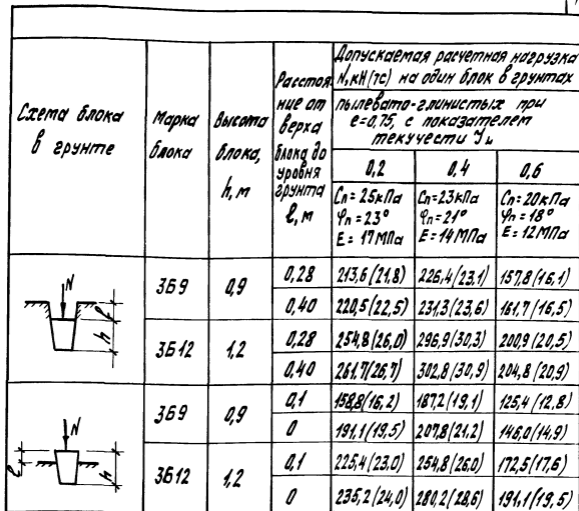 Схема блока в грунте
Марка блока
Высота блока, h, м
Расстояние от верха блока до уровня грунта ℓ, м
Допускаемая расчетная нагрузка
N, кН (тс) на один блок в грунтах
пылевато-глинистых при
e=0,75, с показателем
текучести JL
0,2 0,4 0,6
Cп=25кПа Cп=23кПа Cп=20кПа
φп=23° φп=21° φп=18°
E=17МПа E=14МПа E=12МПа
N ℓ h
3Б9 0,9 0,28 213,6(21,8) 226,4(23,1) 157,8(16,1)
0,40 220,5(22,5) 231,3(23,6) 161,7(16,5)
3Б12 1,2 0,28 254,8(26,0) 296,9(30,3) 200,9(20,5)
0,40 261,7(26,7) 302,8(30,9) 204,8(20,9)
N ℓ h
3Б9 0,9 0,1 158,8(16,2) 187,2(19,1) 125,4(12,8)
0 191,1(19,5) 207,8(21,2) 146,0(14,9)
3Б12 1,2 0,1 225,4(23,0) 254,8(26,0) 172,5(17,6)
0 235,2(24,0) 280,2(28,6) 191,1(19,5)